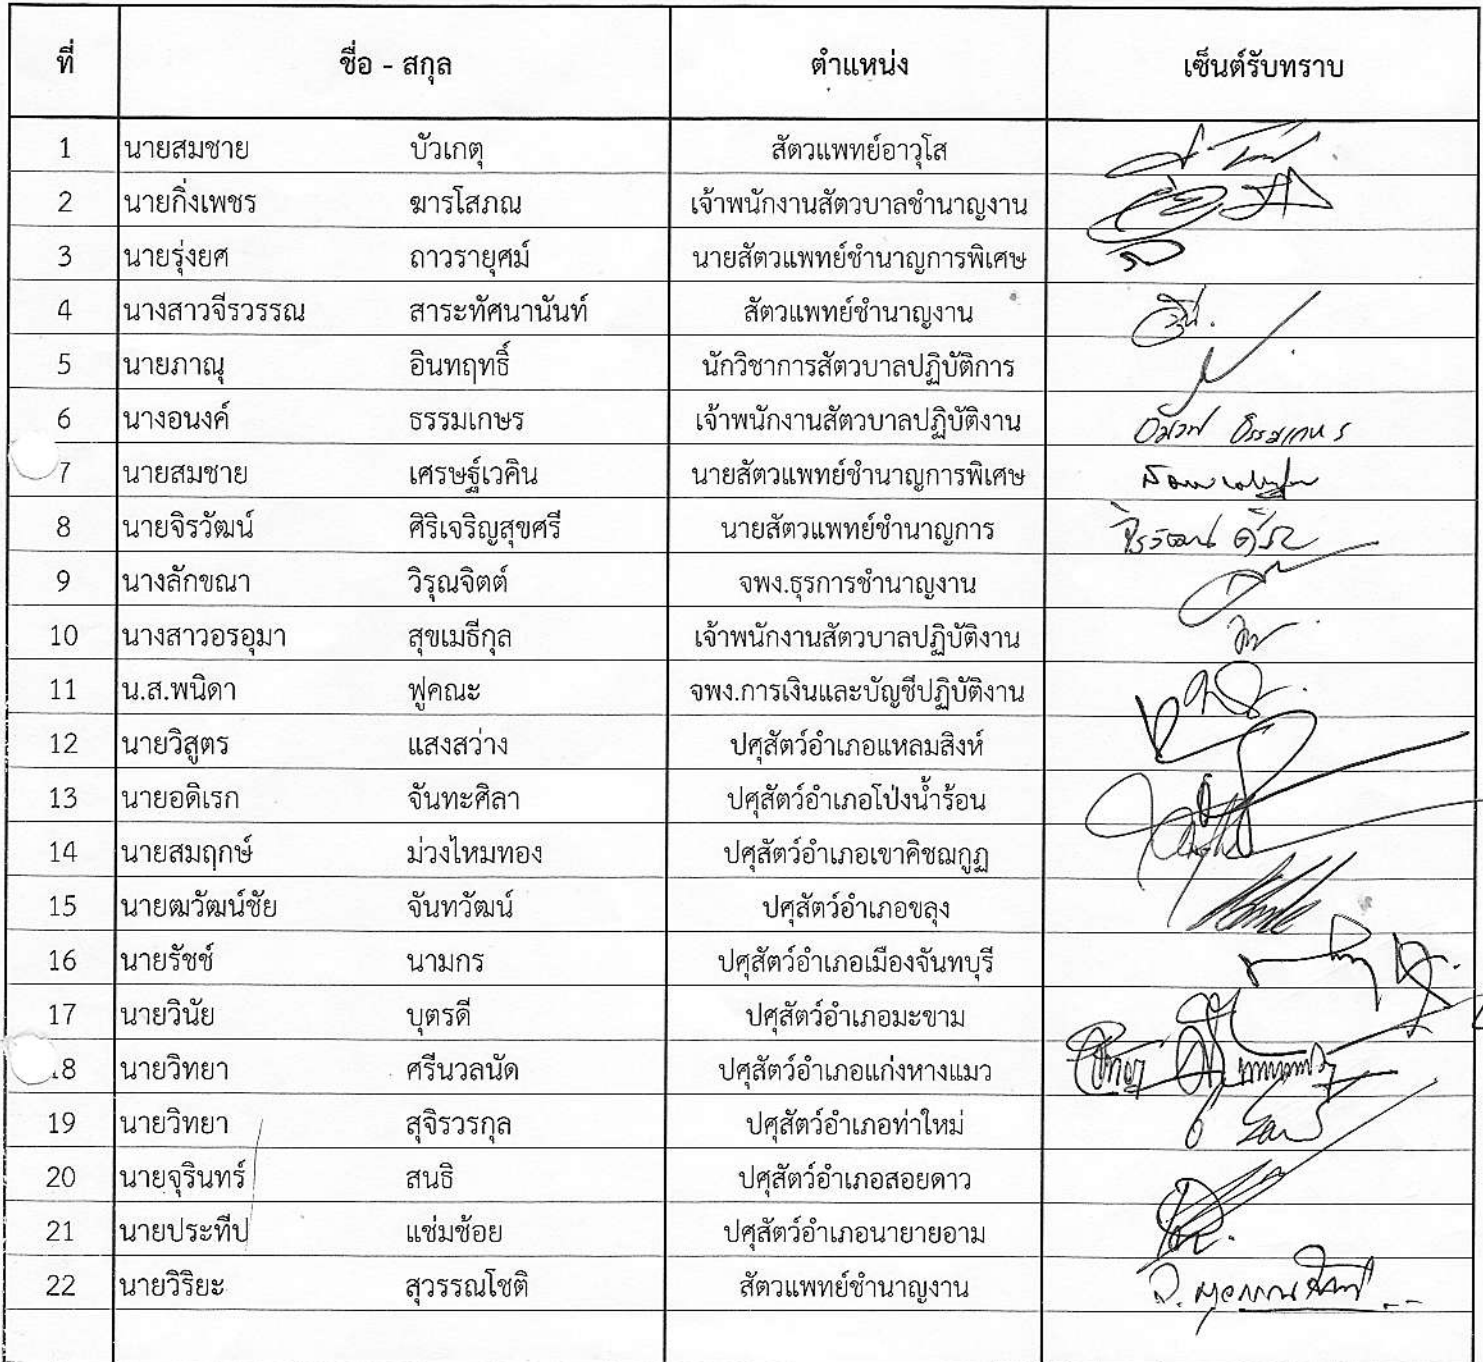 ที่ ชื่อ - สกุล ตำแหน่ง เซ็นต์รับทราบ
1 นายสมชาย บัวเกตุ สัตวแพทย์อาวุโส
2 นายกิ่งเพชร ฆารโสภณ เจ้าพนักงานสัตวบาลชำนาญงาน
3 นายรุ่งยศ ถาวรายุศม์ นายสัตวแพทย์ชำนาญการพิเศษ
4 นางสาวจีรวรรณ สาระทัศนานันท์ สัตวแพทย์ชำนาญงาน
5 นายภาณุ อินทฤทธิ์ นักวิชาการสัตวบาลปฏิบัติการ
6 นางอนงค์ ธรรมเกษร เจ้าพนักงานสัตวบาลปฏิบัติงาน
7 นายสมชาย เศรษฐ์เวคิน นายสัตวแพทย์ชำนาญการพิเศษ
8 นายจิรวัฒน์ ศิริเจริญสุขศรี นายสัตวแพทย์ชำนาญการ
9 นางลักขณา วิรุณจิตต์ จพง.ธุรการชำนาญงาน
10 นางสาวอรอุมา สุขเมธีกุล เจ้าพนักงานสัตวบาลปฏิบัติงาน
11 น.ส.พนิดา ฟูคณะ จพง.การเงินและบัญชีปฏิบัติงาน
12 นายวิสูตร แสงสว่าง ปศุสัตว์อำเภอแหลมสิงห์
13 นายอดิเรก จันทะศิลา ปศุสัตว์อำเภอโป่งน้ำร้อน
14 นายสมฤกษ์ ม่วงไหมทอง ปศุสัตว์อำเภอเขาคิชฌกูฏ
15 นายฒวัฒน์ชัย จันทวัฒน์ ปศุสัตว์อำเภอขลุง
16 นายรัชช์ นามกร ปศุสัตว์อำเภอเมืองจันทบุรี
17 นายวินัย บุตรดี ปศุสัตว์อำเภอมะขาม
18 นายวิทยา ศรีนวลนัด ปศุสัตว์อำเภอแก่งหางแมว
19 นายวิทยา สุจิรวรกุล ปศุสัตว์อำเภอท่าใหม่
20 นายจุรินทร์ สนธิ ปศุสัตว์อำเภอสอยดาว
21 นายประทีป แช่มช้อย ปศุสัตว์อำเภอนายายอาม
22 นายวิริยะ สุวรรณโชติ สัตวแพทย์ชำนาญงาน